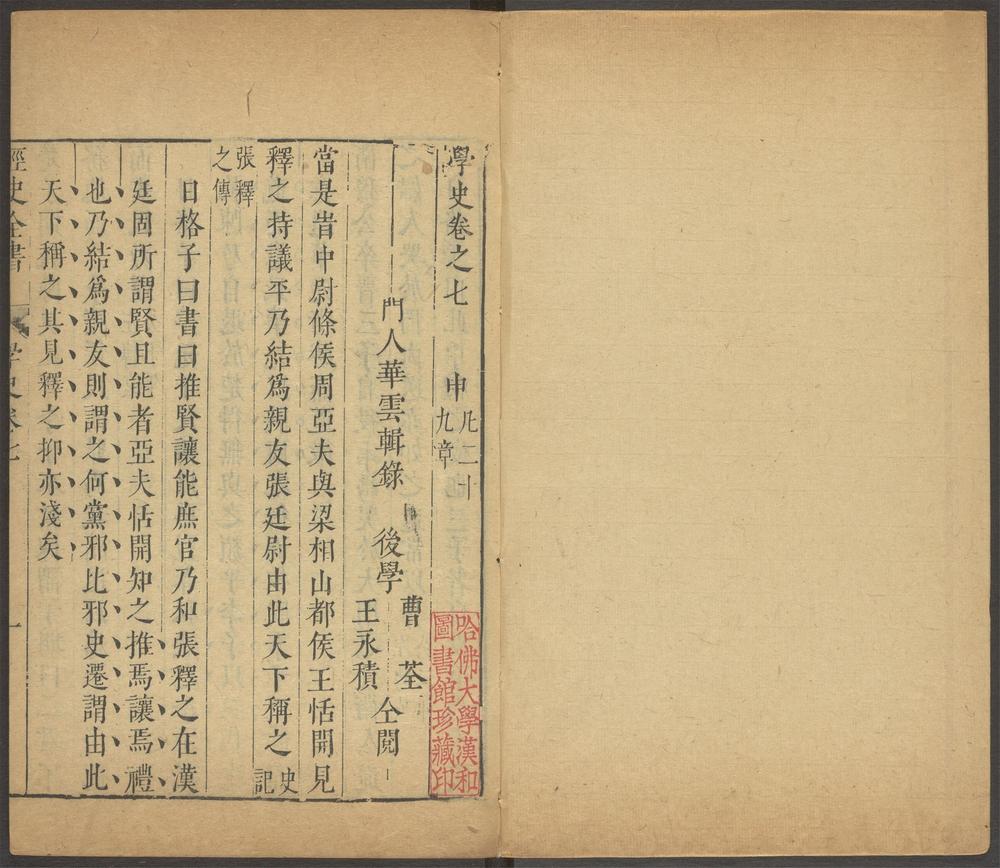 學史卷之七　申凡二十九章
門人華雲輯錄　後學曹荃王永積仝閱
當是旹中尉條侯周亞夫與梁相山都侯王恬開見
釋之持議平乃結爲親友張廷尉由此天下稱之史記
張釋之傳
日格子曰書曰推賢讓能庶官乃和張釋之在漢
廷固所謂賢且能者亞夫恬開知之推焉讓焉禮
也乃結爲親友則謂之何黨邪比邪史遷謂由此
天下稱之其見釋之抑亦淺矣
經史全書　學史卷七　一
哈佛大學漢和
圖書館珍藏印